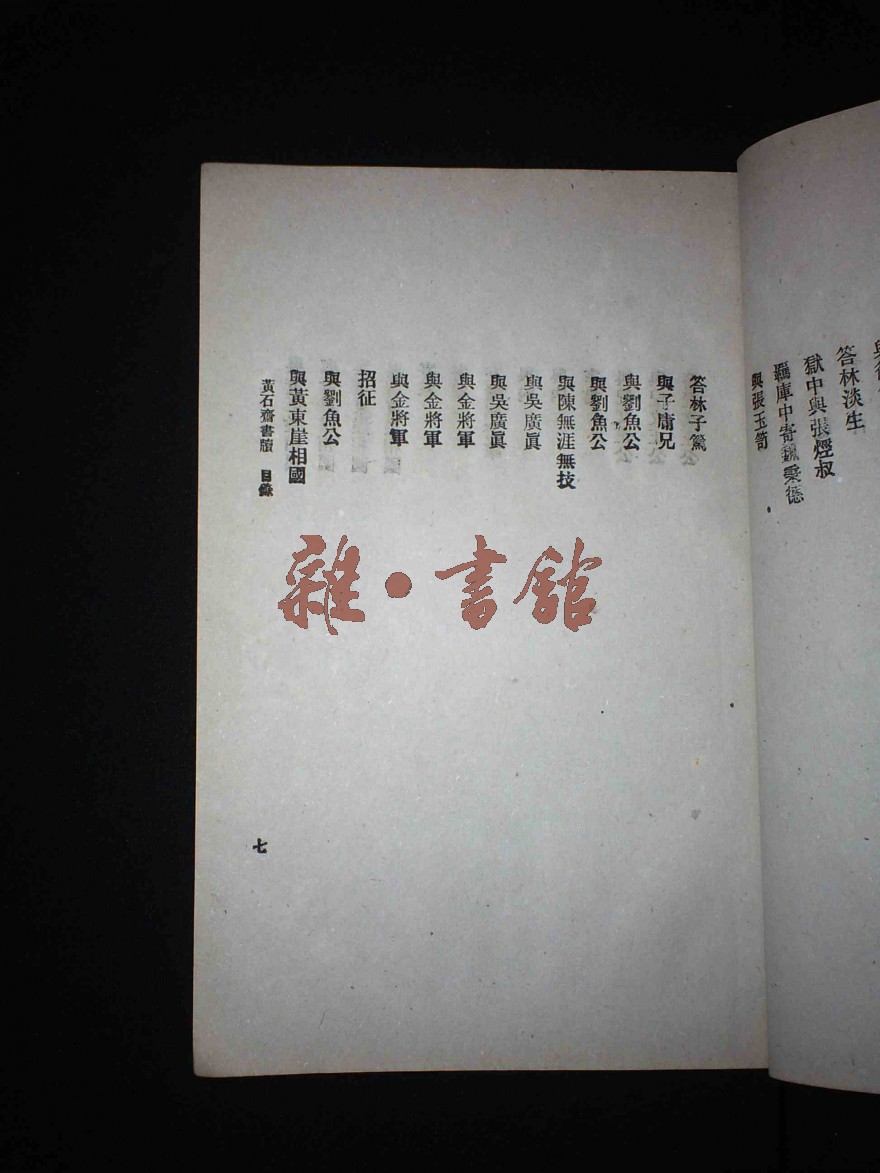 答林淡生
獄中與張煙叔
與張玉笥
答林子篤
與子庸兄
與劉魚公
與劉魚公
與陳無涯無技
與吳廣眞
與吳廣眞
與金將軍
與金將軍
與金將軍
招征
與劉魚公
與黃東崖相國
黃石齋書牘 目錄
七
雜·書館